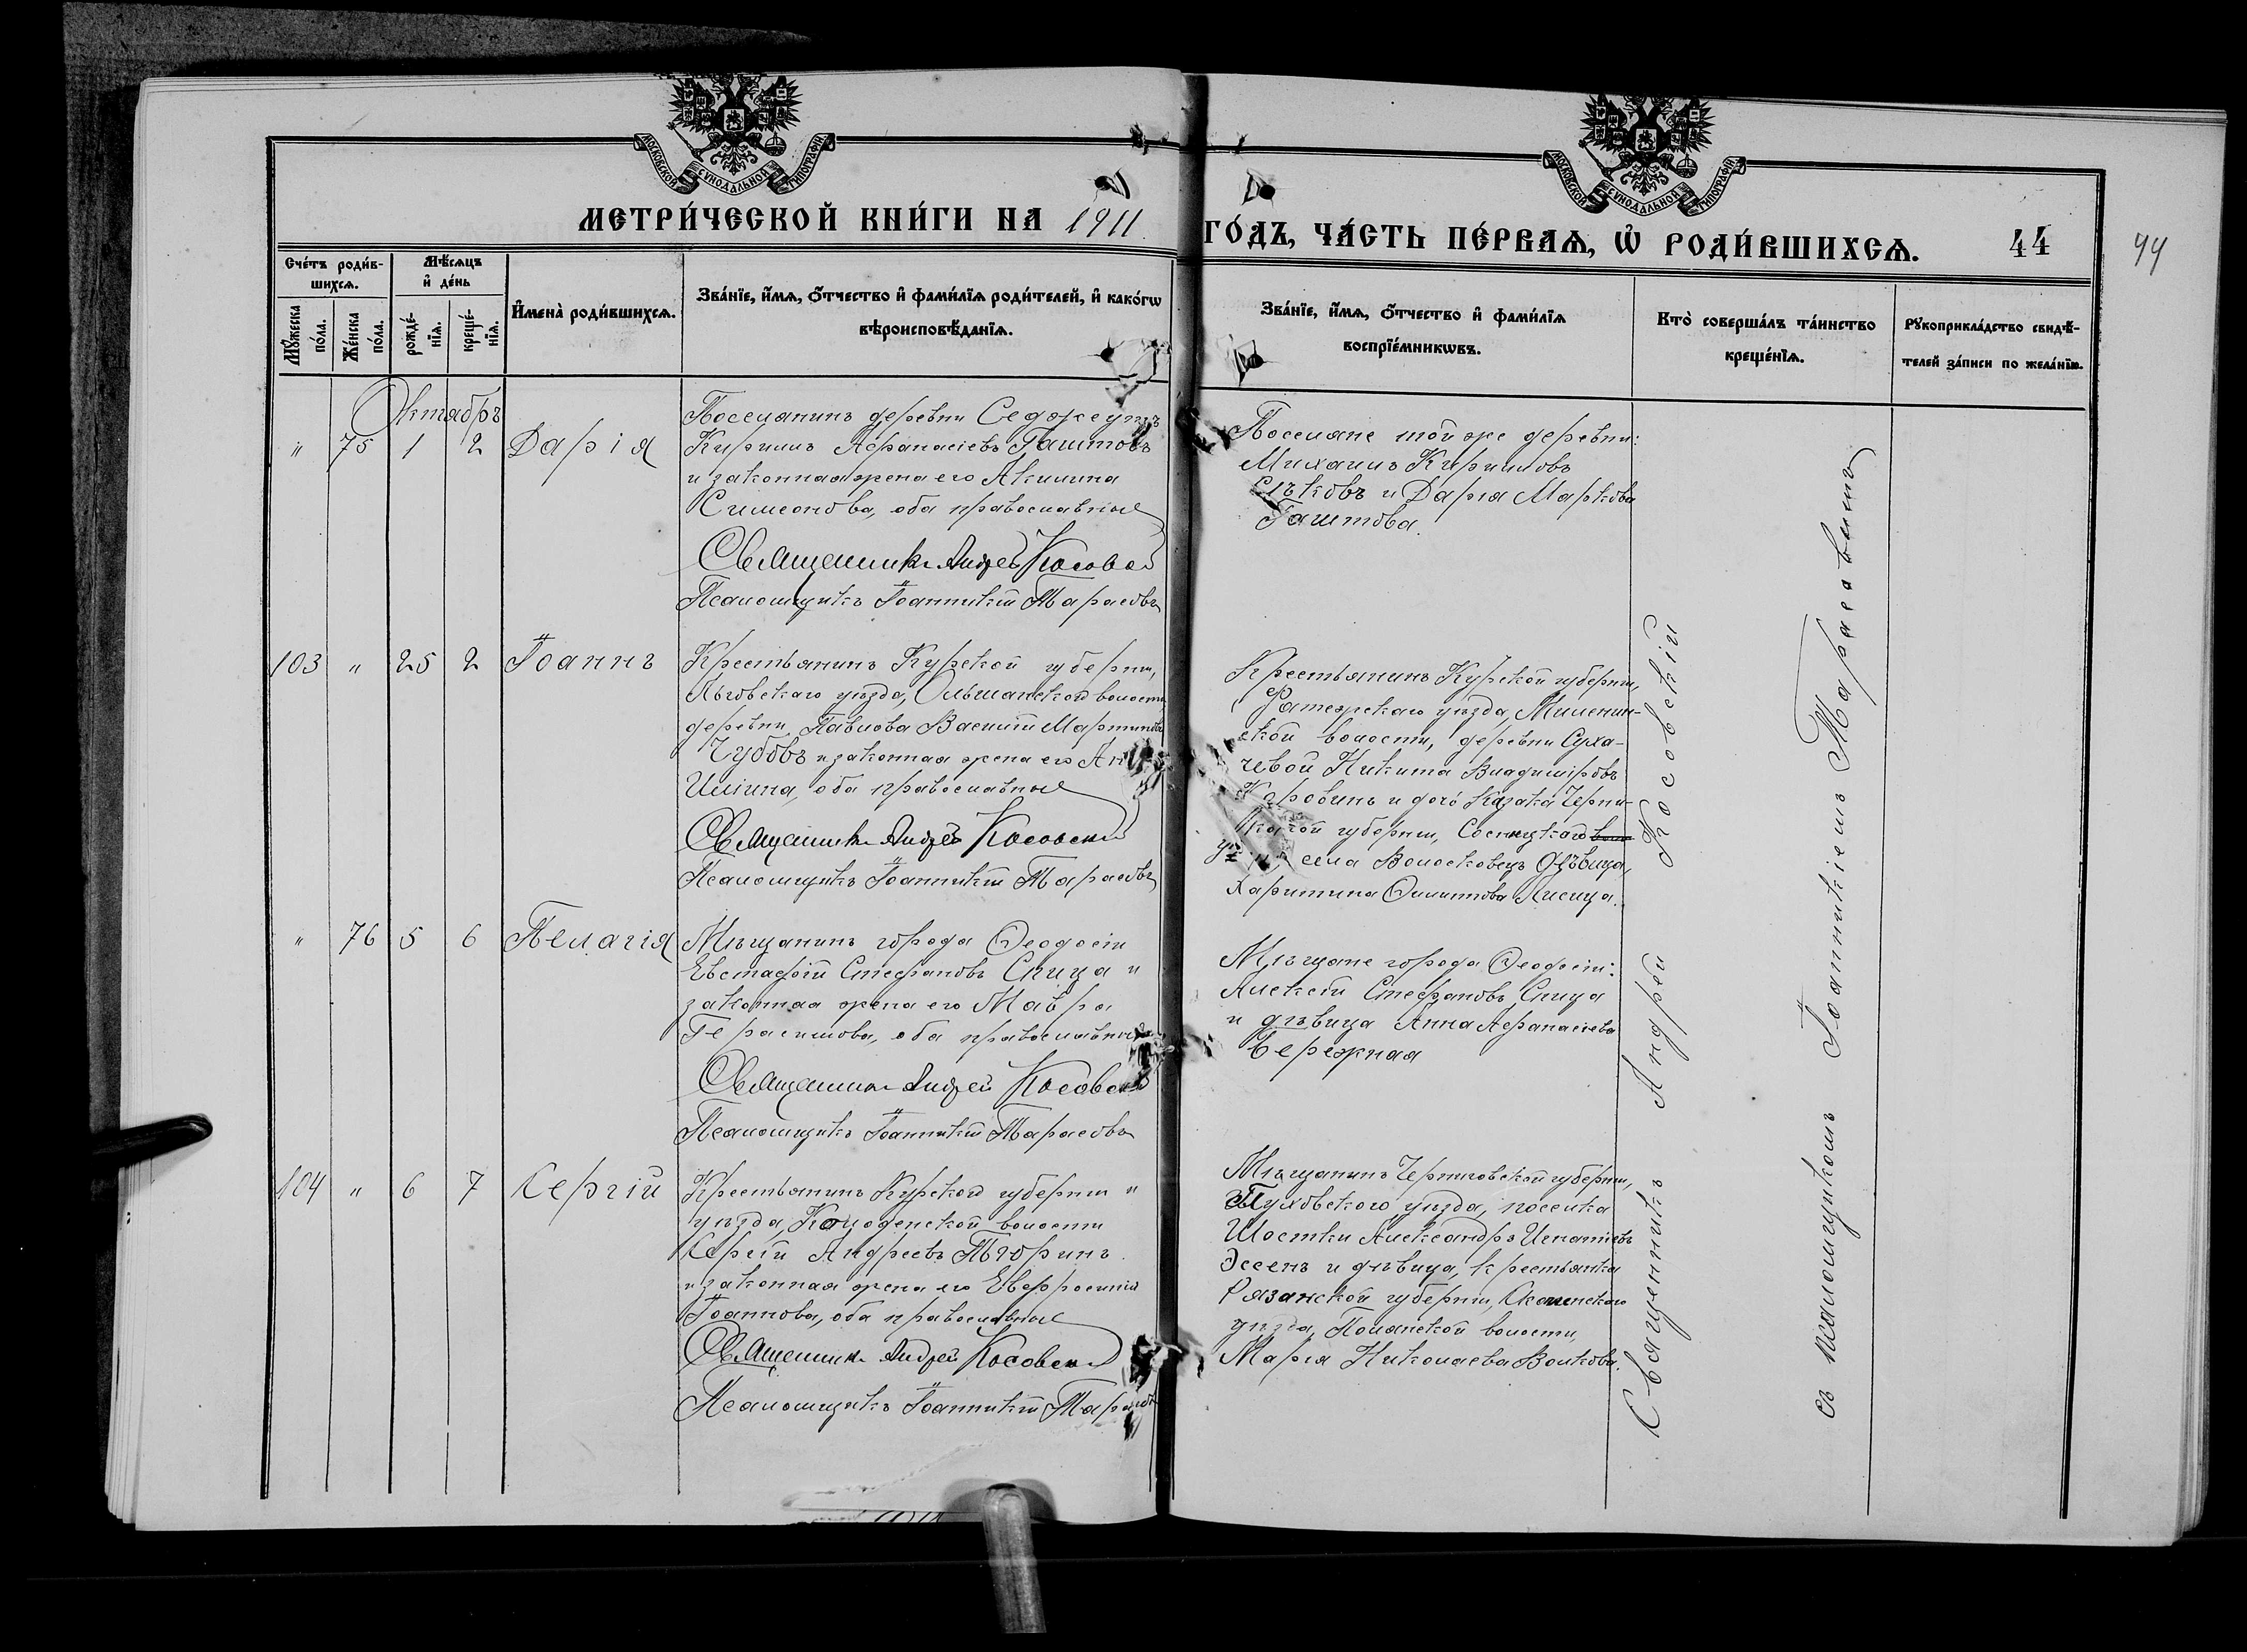 МОСКОВСКОЙ СѴНОДАЛЬНОЙ ТИПОГРАФІИ
МОСКОВСКОЙ СѴНОДАЛЬНОЙ ТИПОГРАФІИ
МЕТРИ́ЧЕСКОЙ КНИ́ГИ НА 1911 ГО́ДЪ, ЧА́СТЬ ПЕ́РВАѦ, Ѡ҆ РОДИ́ВШИХСѦ. 44
44
Сче́тъ роди́в-
шихсѧ.
Мꙋ́жеска
по́ла.
Же́нска
по́ла.
Мѣ́сѧцъ
и҆ де́нь
рожде́-
нїѧ.
креще́-
нїѧ.
И҆мена̀ роди́вшихсѧ.
Зва́нїе, и҆́мѧ, ѻ҆́тчество и҆ фами́лїѧ роди́телей, и҆ како́гѡ
вѣроисповѣ́данїѧ.
Зва́нїе, и҆́мѧ, ѻ҆́тчество и҆ фами́лїѧ
воспрїе́мникѡвъ.
Кто̀ соверша́лъ та́инство
креще́нїѧ.
Рꙋкоприкла́дство свидѣ́-
телей за́писи по жела́нїю.
Октябрь
" 75 1 2 Дарія
Поселянинъ деревни Седжеутъ
Кириллъ Аѳанасіевъ Гаштовъ
и законная жена его Акилина
Симеонова, оба православные
Священникъ Андрей Косовскій
Псаломщикъ Іоанникій Тарасовъ
Поселяне той же деревни:
Михаилъ Кирилловъ
и Дарія Маркова
Гаштова.
103 " 25 2 Іоаннъ
Крестьянинъ Курской губерніи,
Льговскаго уѣзда, Ольшанской волости,
деревни Павлова Василій Мартиновъ
Чубовъ и законная жена его
Иліина, оба православные
Священникъ Андрей Косовскій
Псаломщикъ Іоанникій Тарасовъ
Крестьянинъ Курской губерніи,
Фатежскаго уѣзда, Миленин-
ской волости, деревни Суха-
чевой Никита Владиміровъ
и дочь казака Черни-
губерніи, Сосницкаго
села Волосковецъ дѣвица,
Харитина Филиппова Лисица.
" 76 5 6 Пелагія
Мѣщанинъ города Ѳеодосіи
Евстафій Стефановъ Спица и
законная жена его Мавра
Герасимова, оба православные
Священникъ Андрей Косовскій
Псаломщикъ Іоанникій Тарасовъ
Мѣщане города Ѳеодосіи:
Алексѣй Стефановъ Спица
и дѣвица Анна Аѳанасіева
Бережная
104 " 6 7 Сергій
Крестьянинъ Курской губерніи и
уѣзда, волости
Сергій Андреевъ
и законная жена его Евфросинія
Іоаннова, оба православные
Священникъ Андрей Косовскій
Псаломщикъ Іоанникій Тарасовъ
Мѣщанинъ Черниговской губерніи,
Глуховского уѣзда, поселка
Шостки Александръ Игнатіевъ
Эссенъ и дѣвица, крестьянка
Рязанской губерніи, Скопинскаго
уѣзда, Полянской волости,
Марія Николаева Волкова.
Священникъ Андрей Косовскій
съ псаломщикомъ Іоанникіемъ Тарасовымъ